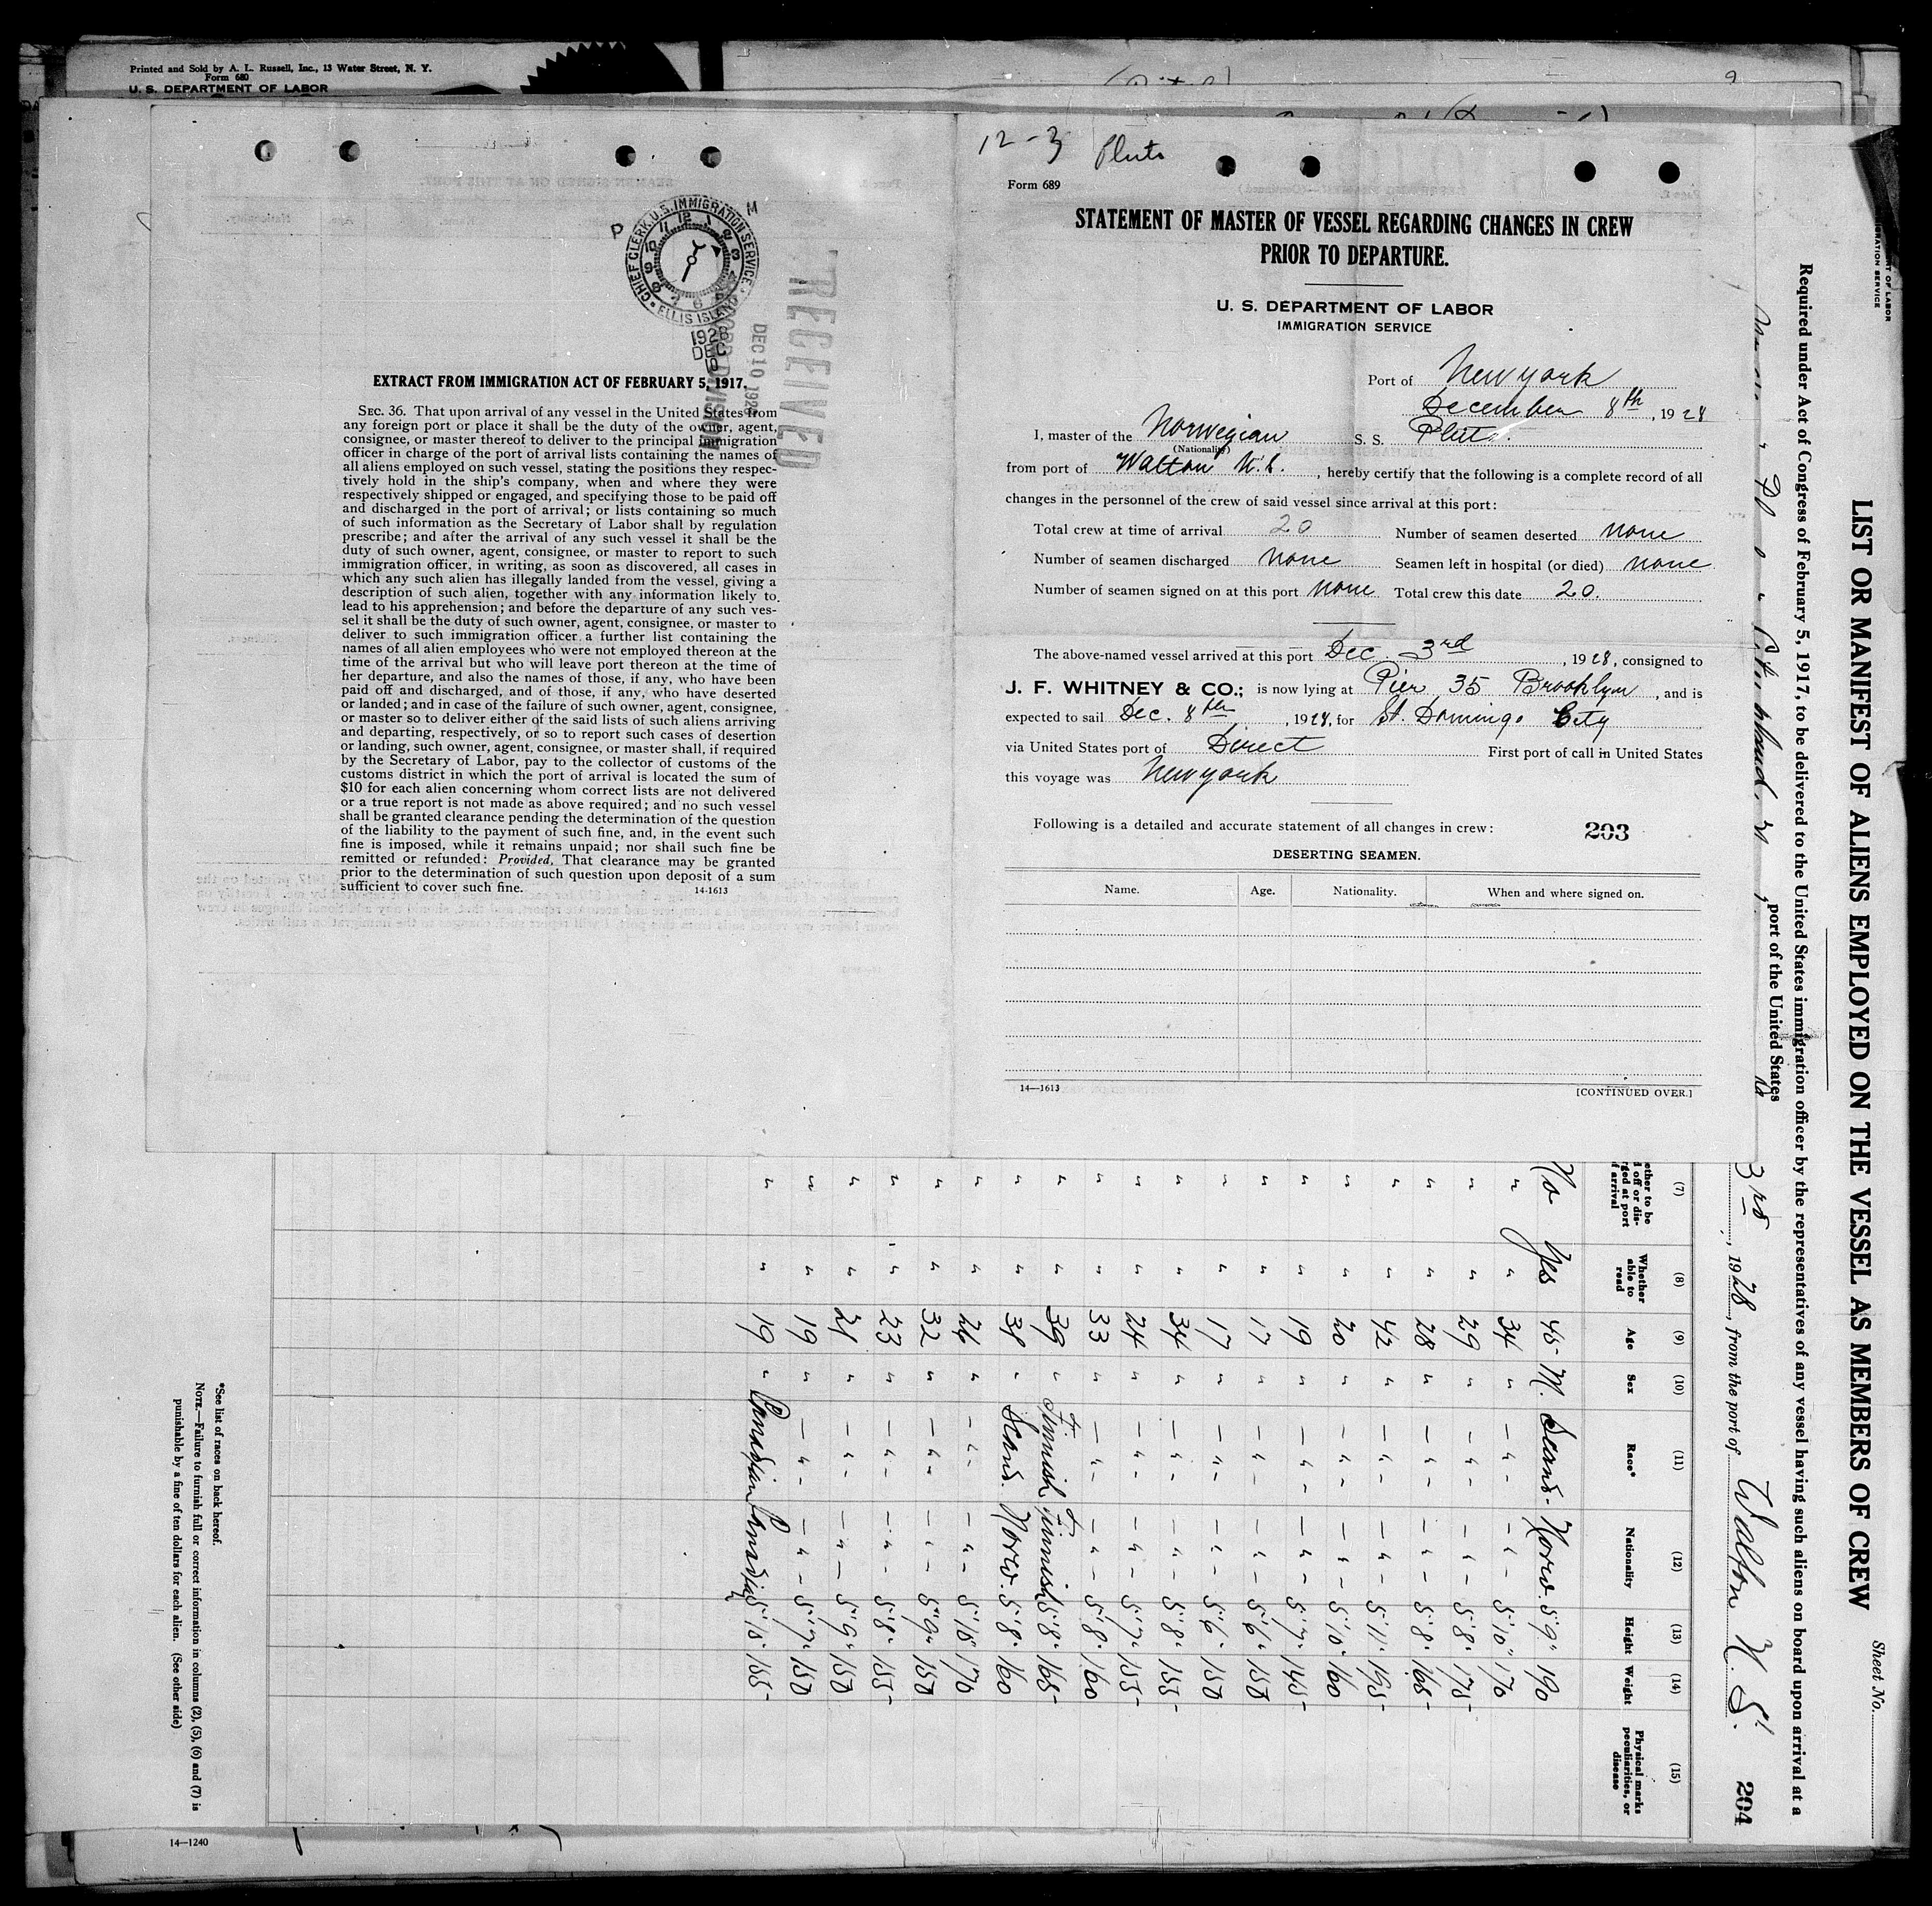 Printed and Sold by A. L. Russell, Inc., 13 Water Street, N. Y.
Form 680
U. S. DEPARTMENT OF LABOR
P M
CHIEF CLERK, U.S. IMMIGRATION SERVICE.
ELLIS ISLAND
1928
DEC
10
RECEIVED
DEC 10 1928
RECORD DIVISION
EXTRACT FROM IMMIGRATION ACT OF FEBRUARY 5, 1917.
SEC. 36. That upon arrival of any vessel in the United States from
any foreign port or place it shall be the duty of the owner, agent,
consignee, or master thereof to deliver to the principal immigration
officer in charge of the port of arrival lists containing the names of
all aliens employed on such vessel, stating the positions they respec-
tively hold in the ship's company, when and where they were
respectively shipped or engaged, and specifying those to be paid off
and discharged in the port of arrival; or lists containing so much
of such information as the Secretary of Labor shall by regulation
prescribe; and after the arrival of any such vessel it shall be the
duty of such owner, agent, consignee, or master to report to such
immigration officer, in writing, as soon as discovered, all cases in
which any such alien has illegally landed from the vessel, giving a
description of such alien, together with any information likely to
lead to his apprehension; and before the departure of any such ves-
sel it shall be the duty of such owner, agent, consignee, or master to
deliver to such immigration officer a further list containing the
names of all alien employees who were not employed thereon at the
time of the arrival but who will leave port thereon at the time of
her departure, and also the names of those, if any, who have been
paid off and discharged, and of those, if any, who have deserted
or landed; and in case of the failure of such owner, agent, consignee,
or master so to deliver either of the said lists of such aliens arriving
and departing, respectively, or so to report such cases of desertion
or landing, such owner, agent, consignee, or master shall, if required
by the Secretary of Labor, pay to the collector of customs of the
customs district in which the port of arrival is located the sum of
$10 for each alien concerning whom correct lists are not delivered
or a true report is not made as above required; and no such vessel
shall be granted clearance pending the determination of the question
of the liability to the payment of such fine, and, in the event such
fine is imposed, while it remains unpaid; nor shall such fine be
remitted or refunded: Provided, That clearance may be granted
prior to the determination of such question upon deposit of a sum
sufficient to cover such fine.
14-1613
12-3 Pluto
Form 689
STATEMENT OF MASTER OF VESSEL REGARDING CHANGES IN CREW
PRIOR TO DEPARTURE.
U. S. DEPARTMENT OF LABOR
IMMIGRATION SERVICE
Port of New York
December 8th, 1928
I, master of the Norwegian S. S. Pluto.
(Nationality)
from port of Walton N.S., hereby certify that the following is a complete record of all
changes in the personnel of the crew of said vessel since arrival at this port:
Total crew at time of arrival 20 Number of seamen deserted none
Number of seamen discharged none Seamen left in hospital (or died) none
Number of seamen signed on at this port none Total crew this date 20.
The above-named vessel arrived at this port Dec. 3rd, 1928, consigned to
J. F. WHITNEY & CO.; is now lying at Pier 35 Brooklyn, and is
expected to sail Dec. 8th, 1928, for St. Domingo City
via United States port of Direct First port of call in United States
this voyage was New York
Following is a detailed and accurate statement of all changes in crew: 203
DESERTING SEAMEN.
Name. Age. Nationality. When and where signed on.
14—1613
[CONTINUED OVER.]
Sheet No.
LIST OR MANIFEST OF ALIENS EMPLOYED ON THE VESSEL AS MEMBERS OF CREW
Required under Act of Congress of February 5, 1917, to be delivered to the United States immigration officer by the representatives of any vessel having such aliens on board upon arrival at a
port of the United States
3rd, 1928, from the port of Walton N. S. 204
(7) (8) (9) (10) (11) (12) (13) (14) (15)
Whether able to read Age Sex Race* Nationality Height Weight Physical marks peculiarities, or disease
No Yes 45 M. Scand. Norw. 5'9" 190
" " 34 " — " — — " — 5'10" 170
" " 29 " — " — — " — 5'8" 175
" " 28 " — " — — " — 5'8" 165
" " 42 " — " — — " — 5'11" 195
" " 20 " — " — — " — 5'10" 160
" " 19 " — " — — " — 5'7" 145
" " 17 " — " — — " — 5'6" 150
" " 17 " — " — — " — 5'6" 150
" " 34 " — " — — " — 5'8" 155
" " 24 " — " — — " — 5'7" 155
" " 33 " — " — — " — 5'8" 160
" " 39 " Finnish Finnish 5'8" 165
" " 38 " Scand. Norw. 5'8" 160
" " 26 " — " — — " — 5'10" 170
" " 32 " — " — — " — 5'9" 150
" " 23 " — " — — " — 5'8" 155
" " 21 " — " — — " — 5'9" 150
" " 19 " — " — — " — 5'7" 150
" " 19 " Canadian Canadian 5'10" 155
*See list of races on back hereof.
NOTE.—Failure to furnish full or correct information in columns (2), (5), (6) and (7) is
punishable by a fine of ten dollars for each alien. (See other side)
14—1240